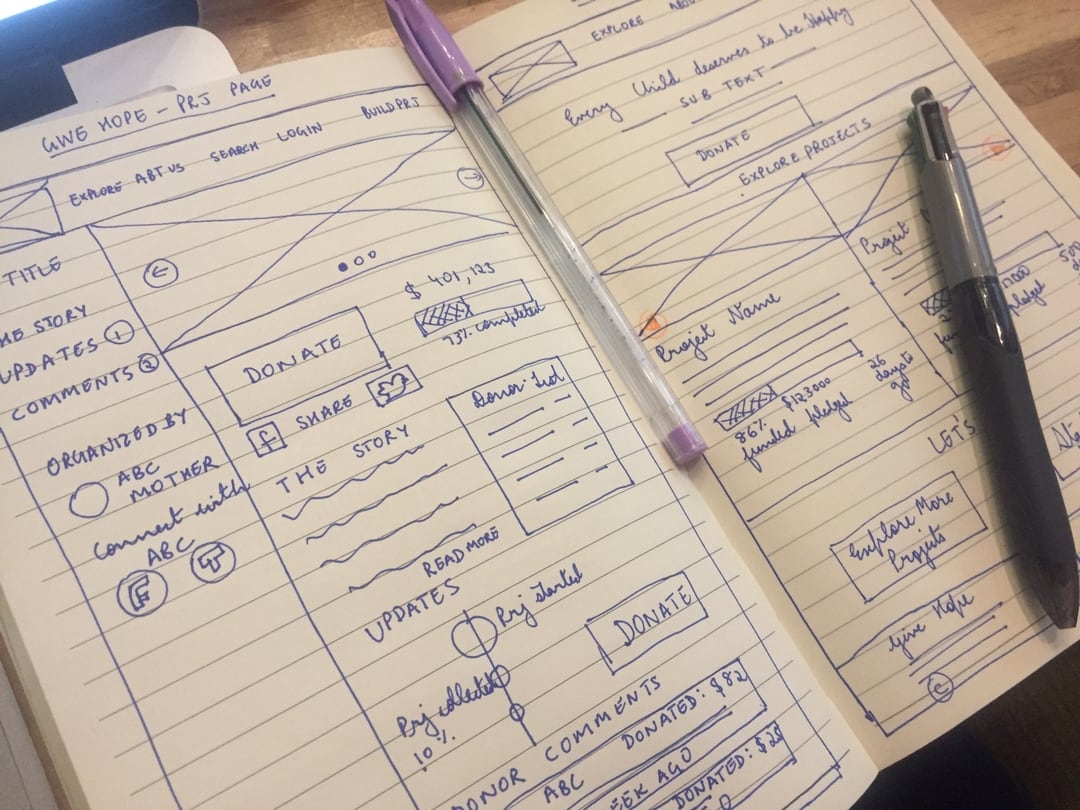 GIVE HOPE - PRJ PAGE
EXPLORE ABT US SEARCH LOGIN BUILD PRJ
TITLE
HE STORY
UPDATES 1
COMMENTS 2
ORGANIZED BY
ABC
MOTHER
Connect with
ABC
$ 401,123
73% completed
DONATE
f SHARE
Donor List
THE STORY
READ MORE
UPDATES
Prj started
Prj collected
10%
DONATE
DONOR COMMENTS
ABC DONATED: $82
EEK AGO
DONATED: $25
EXPLORE ABOU
Every Child deserves to be Happy
SUB TEXT
DONATE
EXPLORE PROJECTS
Project Name
86% $123000 26
funded pledged days to
go
Project
LET'S
Explore More
Projects
Give Hope
©